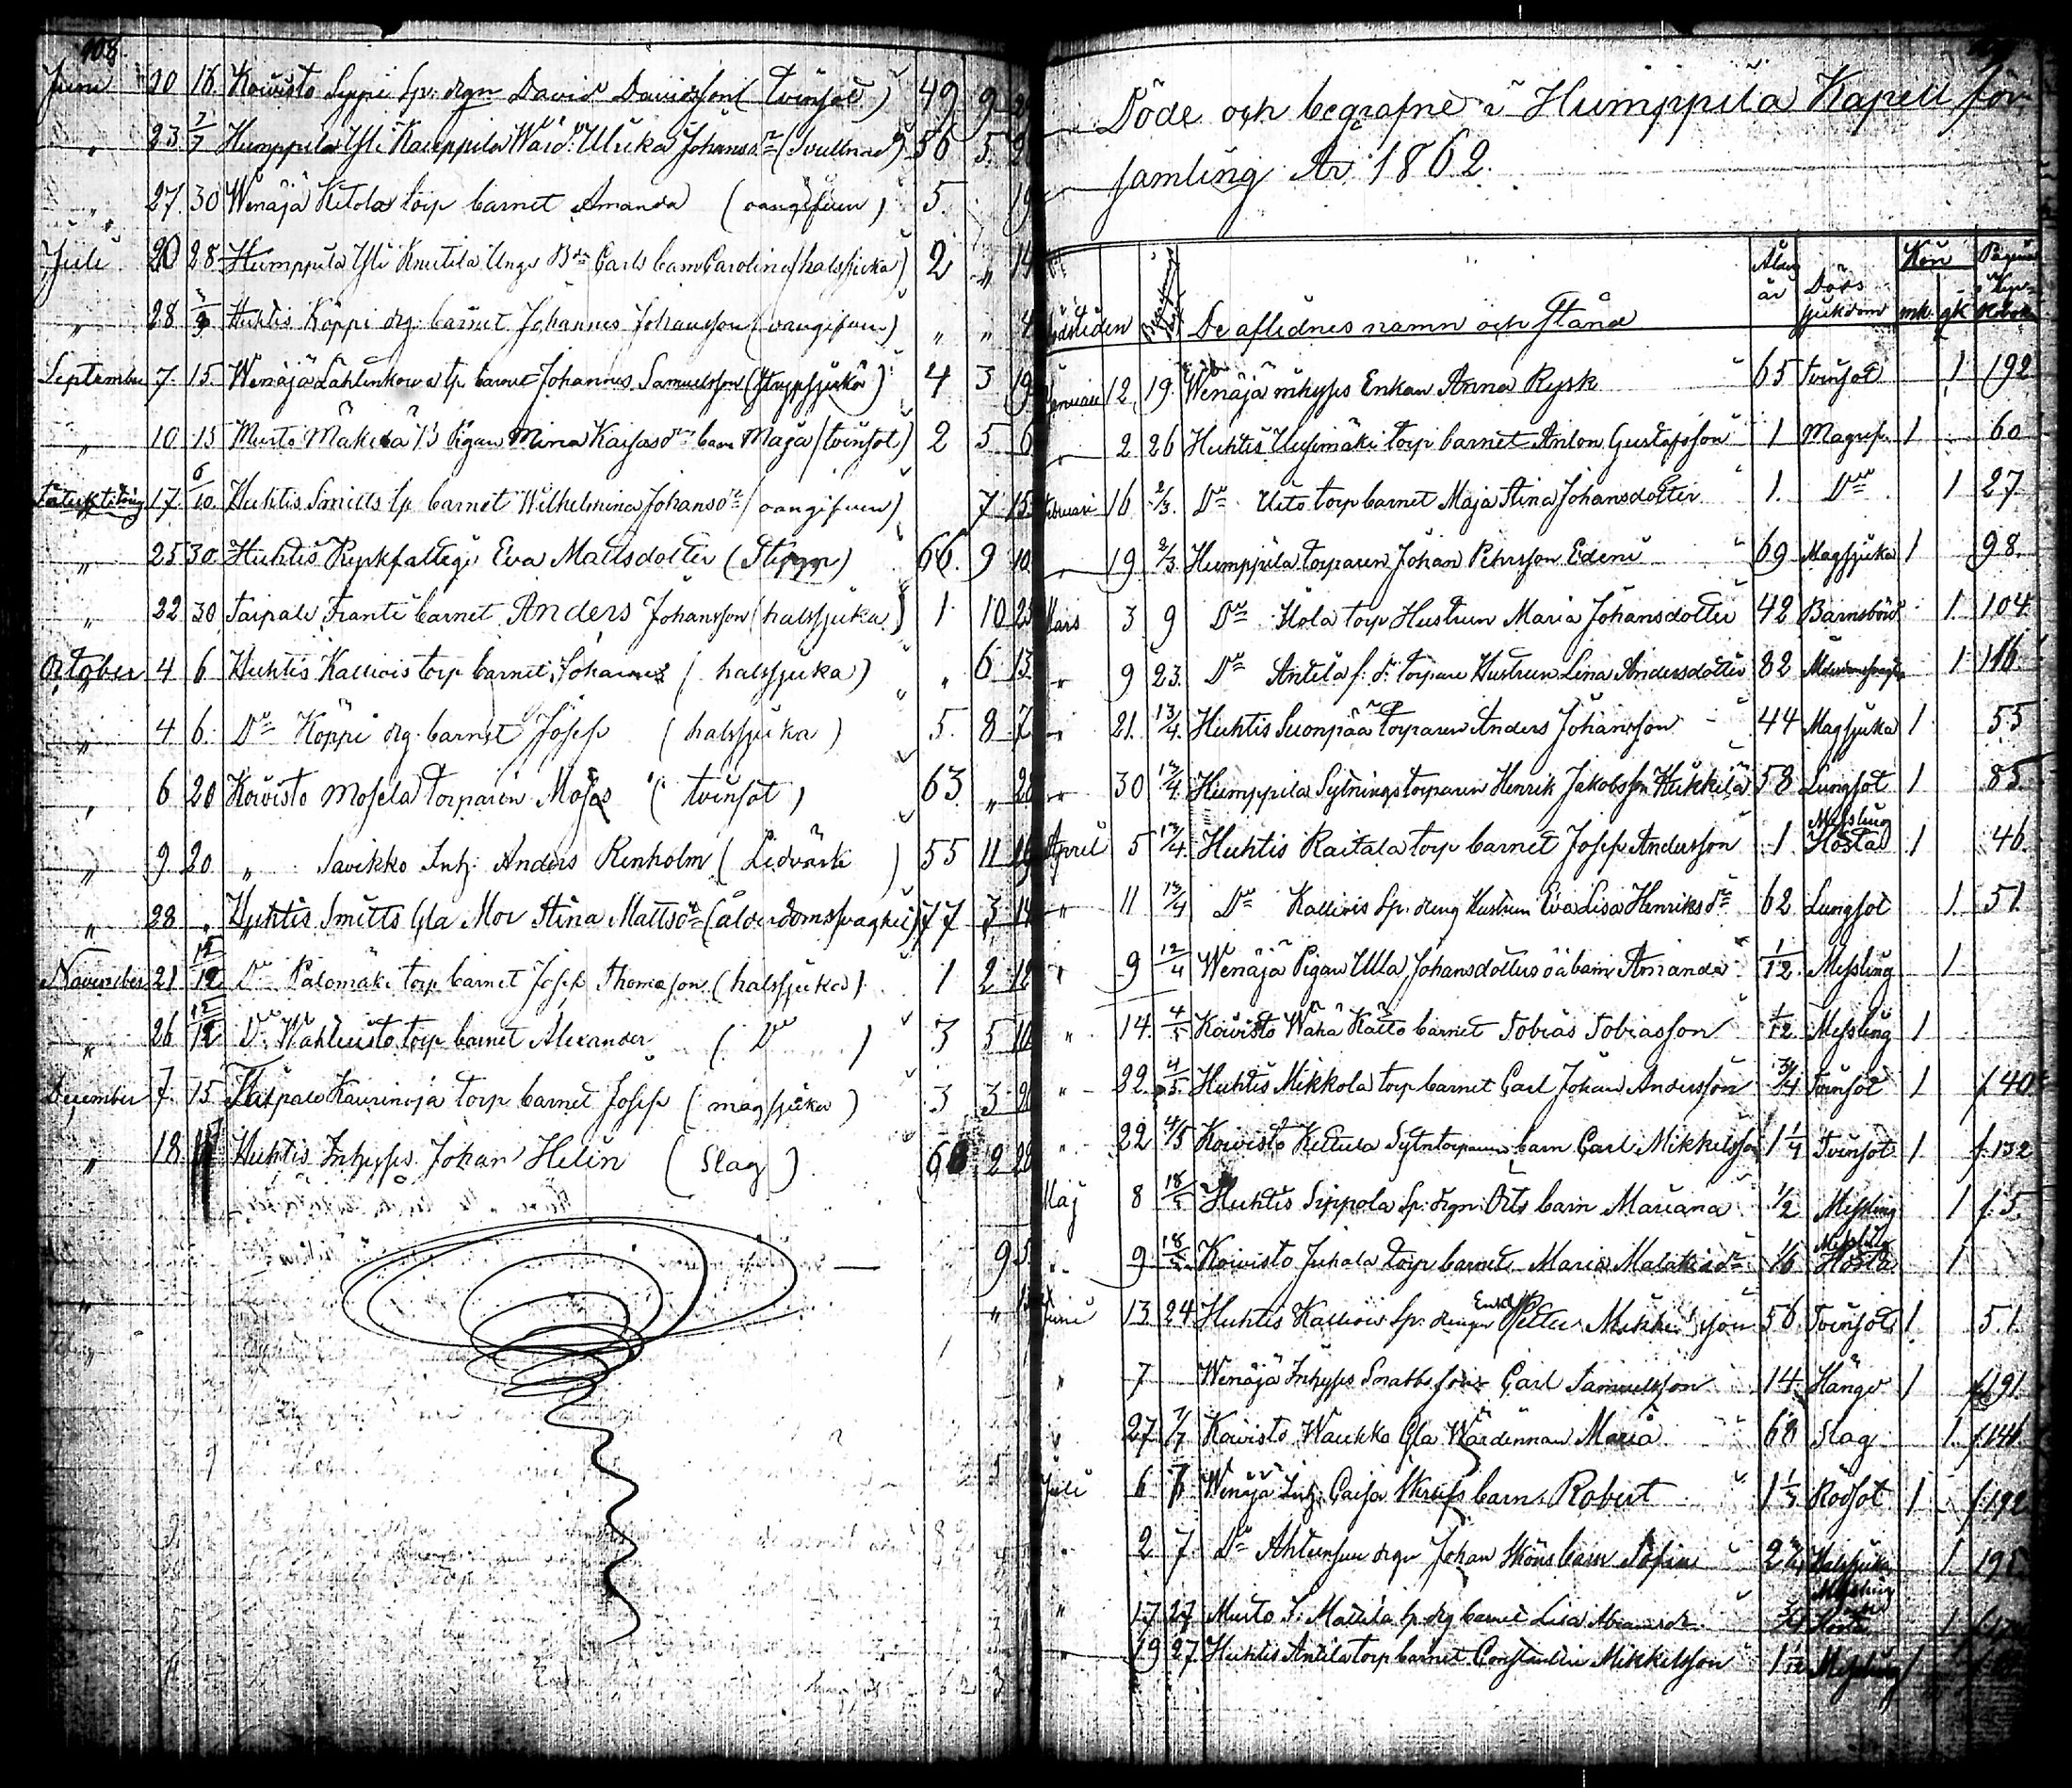 108.
Juni 20 16 Koivisto Seppi Sp. drgn David Davidsson (Tvinsot) 49 9
" 23 2/7 Humppila Yli Kauppila Wärd: Ulrika Johansdr (Svullnad) 56 5
" 27. 30 Wenäjä Kitola torp barnet Amanda (oangifven) 5 19
Juli 20 28 Humppila Yli Knutila Unge Bdn Carls barn Carolina (halssjuka) 2 " 14
" 28 Huhtis Köppi drg: barnet Johannes Johansson (oangifven) " " 4
September 7. 15. Wenäjä Lählenkorva tp barnet Johannes Samuelsson (Strypsjuka) 4 3 19
" 10 15 Murto Mäkilä Pigan Mina Kaisasdr barn Maja (tvinsot) 2 5 6
17. 6/10 Huhtis Smitts tp barnet Wilhelmina Johansdr (oangifven) 7 15
" 25 30 Huhtis Ryskfattige Eva Mattsdotter (Stygn) 66. 9 10
" 22 30 Taipale Frantti barnet Anders Johansson (halssjuka) 1 10 23
October 4 6 Huhtis Kalliois torp barnet Johannes (halssjuka) " 6 13
" 4 6. Do Köppi drg. barnet Josef (halssjuka) 5. 8 7
" 6 20 Koivisto Mosela Torparen Moses (tvinsot) 63 " 28
" 9. 20 " Savikko Inh: Anders Renholm (Ledvärk) 55 11 19
" 28 " Huhtis Smitts Gla Mor Stina Mattsdr (ålderdomssvaghet) 77 3 14
November 21 Do Palomäki torp barnet Josef Thomasson (halssjuka) 1 2 12
" 26 Do Wahlristo torp barnet Alexander (Do) 3 5 10
December 7. 15 Taipale Kaurinoja torp barnet Josef (magsjuka) 3 3 2
" 18 Huhtis Inhyses Johan Helin (Slag) 68 2 22
Döde och begrafne i Humppila Kapell för-
samling År 1862.
Dödstiden De aflidnes namn och stånd Ålder år Döds sjukdom Kön mk. qk. Pagina
Januari 12. 19. Wenäjä inhyses Enkan Anna Rysk 65 tvinsot 1 192
" 2 26 Huhtis Uusimäki torp barnet Anton Gustafsson 1 Magsj. 1 60
Februari 16 2/3. Do Uito torp barnet Maja Stina Johansdotter 1. Do 1 27
" 19 2/3. Humppila torparen Johan Pehrsson Edeni 69 Magsjuka 1 98.
Mars 3 9 Do Hola torp Hustrun Maria Johansdotter 42 Barnsbörd 1. 104
" 9 23. Do Antila f. d. torpare Hustrun Lina Andersdotter 82 1 116.
" 21. 13/4. Huhtis Suonpää Torparen Anders Johansson 44 Magsjuka 1 55
" 30 13/4. Humppila Sytningstorparen Henrik Jakobsson Kukkila 58 Lungsot 1 85.
April 5 13/4. Huhtis Raitala torp barnet Josef Andersson 1 Messling Hosta 1 46
" 11 13/4 Do Kalliois Sp. dreng Hustrun Eva Lisa Henriksdr 62 Lungsot 1. 51
" 9 12/4 Wenäjä Pigan Ulla Johansdotters oä barn Amanda 1/12. Messling 1
" 14. 4/5 Koivisto Wähä Katto barnet Tobias Tobiasson 1/12. Messling 1
" 22. 4/5. Huhtis Mikkola torp barnet Carl Johan Andersson 3/4 Tvinsot 1 f. 40
" 22 4/5 Koivisto Kettula Sytntorparens barn Carl Mikkelsson 1 1/4 Tvinsot 1 f. 132
Maj 8 18/5 Huhtis Sippola Sp. drgn Orts barn Mariana 1/2 Messling 1 f. 5.
" 9 18/5. Koivisto Juhala torp barnet Maria Malakisdr 1/6 Messling Hosta 1
Juni 13 24 Huhtis Kalliois Sp. drengen Enkl. Petter Mikkelsson 56 Tvinsot 1 51.
" 7 Wenäjä Inhyses Snabbs son Carl Samuelsson 14. Hängd 1 191.
" 27 7/7 Koivisto Waukko Gla Wärdinnan Maria 68 Slag 1. f. 146
Juli 6 7 Wenäjä Inh: Caisa Skrufs barn Robert 1 1/3 Rödsot 1 f. 192
" 2 7. Do Ahtensuu drgn Johan Sköns barn Sofia Halssjuka 1. 195
" 17 27 Murto S: Mattila sp. drg barnet Lisa Abramsdr Messling Hosta 1
" 19 27. Huhtis Antila torp barnet Constantin Mikkelsson 1 1/12 Messling 1